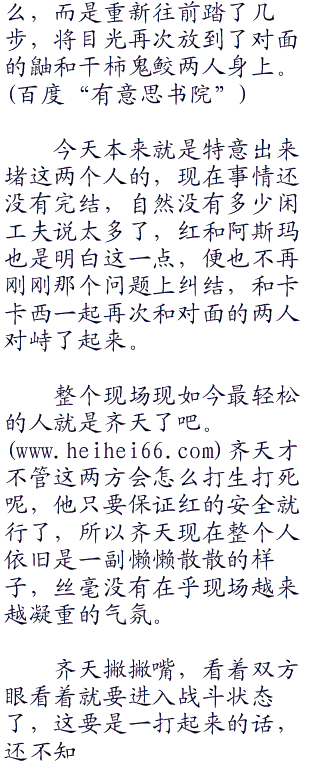 么，而是重新往前踏了几
步，将目光再次放到了对面
的鼬和干柿鬼鲛两人身上。
(百度“有意思书院”)
今天本来就是特意出来
堵这两个人的，现在事情还
没有完结，自然没有多少闲
工夫说太多了，红和阿斯玛
也是明白这一点，便也不再
刚刚那个问题上纠结，和卡
卡西一起再次和对面的两人
对峙了起来。
整个现场现如今最轻松
的人就是齐天了吧。
(www.heihei66.com)齐天才
不管这两方会怎么打生打死
呢，他只要保证红的安全就
行了，所以齐天现在整个人
依旧是一副懒懒散散的样
子，丝毫没有在乎现场越来
越凝重的气氛。
齐天撇撇嘴，看着双方
眼看着就要进入战斗状态
了，这要是一打起来的话，
还不知